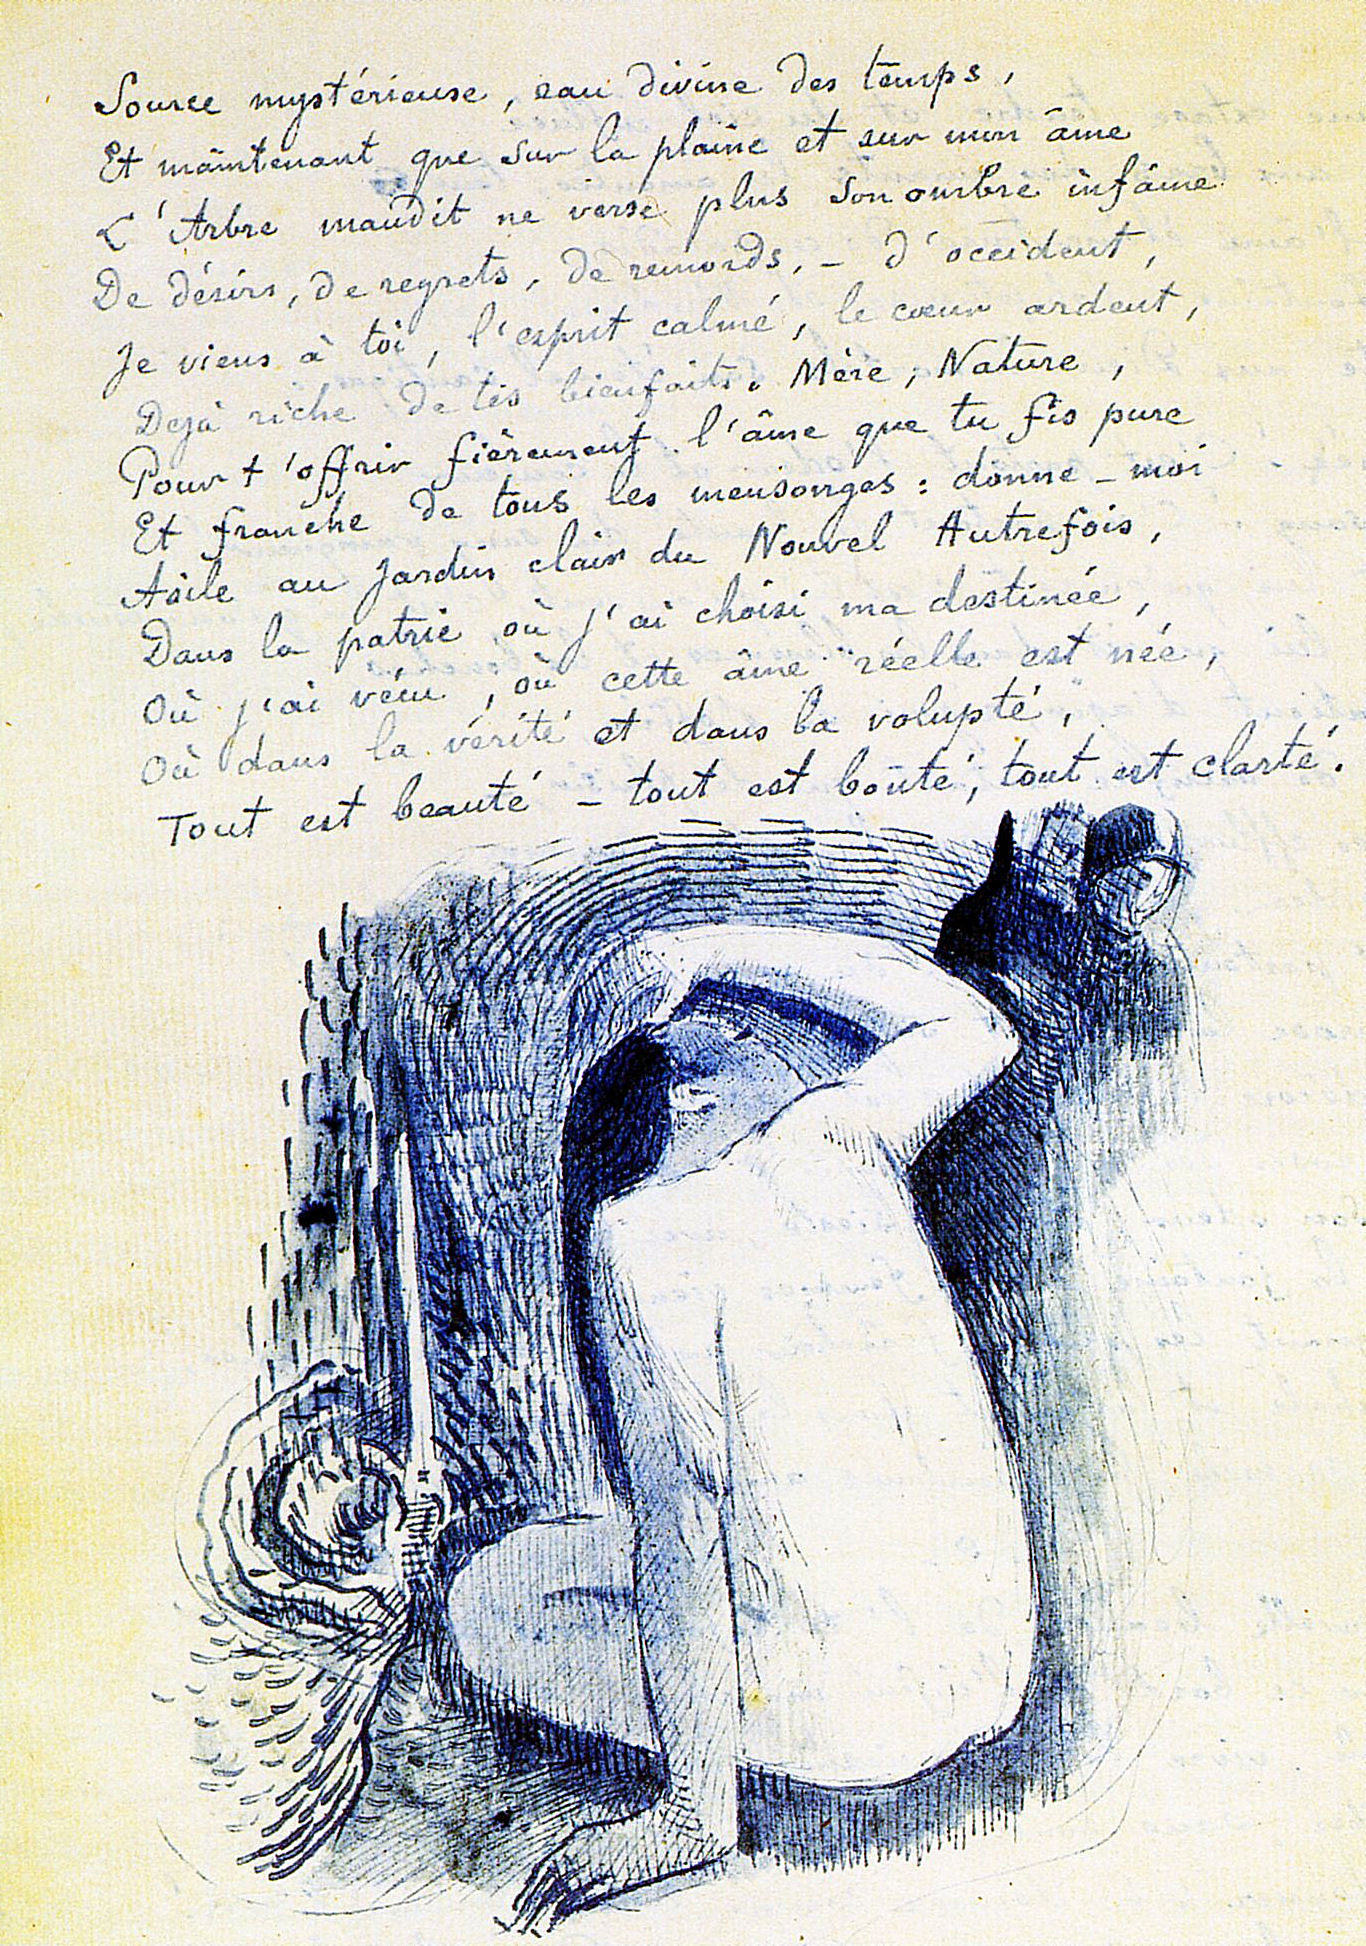 Source mystérieuse, eau divine des temps,
Et maintenant que sur la plaine et sur mon âme
L'Arbre maudit ne verse plus son ombre infâme
De désirs, de regrets, de remords, - d'occident,
Je viens à toi, l'esprit calmé, le cœur ardent,
Dejà riche de tes bienfaits. Mère, Nature,
Pour t'offrir fièrement l'âme que tu fis pure
Et franche de tous les mensonges : donne-moi
Asile au jardin clair du Nouvel Autrefois,
Dans la patrie où j'ai choisi ma destinée,
Où j'ai vécu, où cette âme réelle est née,
Où dans la vérité et dans la volupté,
Tout est beauté - tout est bonté, tout est clarté.